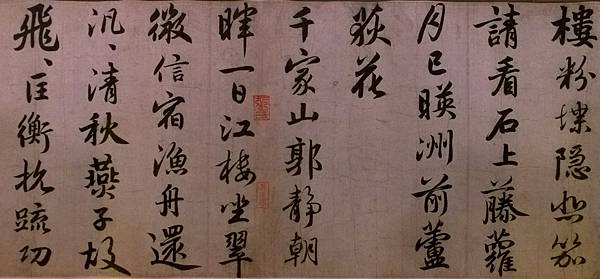 樓粉堞隱悲笳
請看石上藤蘿
月已暎洲前蘆
荻花
千家山郭靜朝
暉一日江樓坐翠
微信宿漁舟還
汎〻清秋燕子故
飛〻匡衡抗疏功